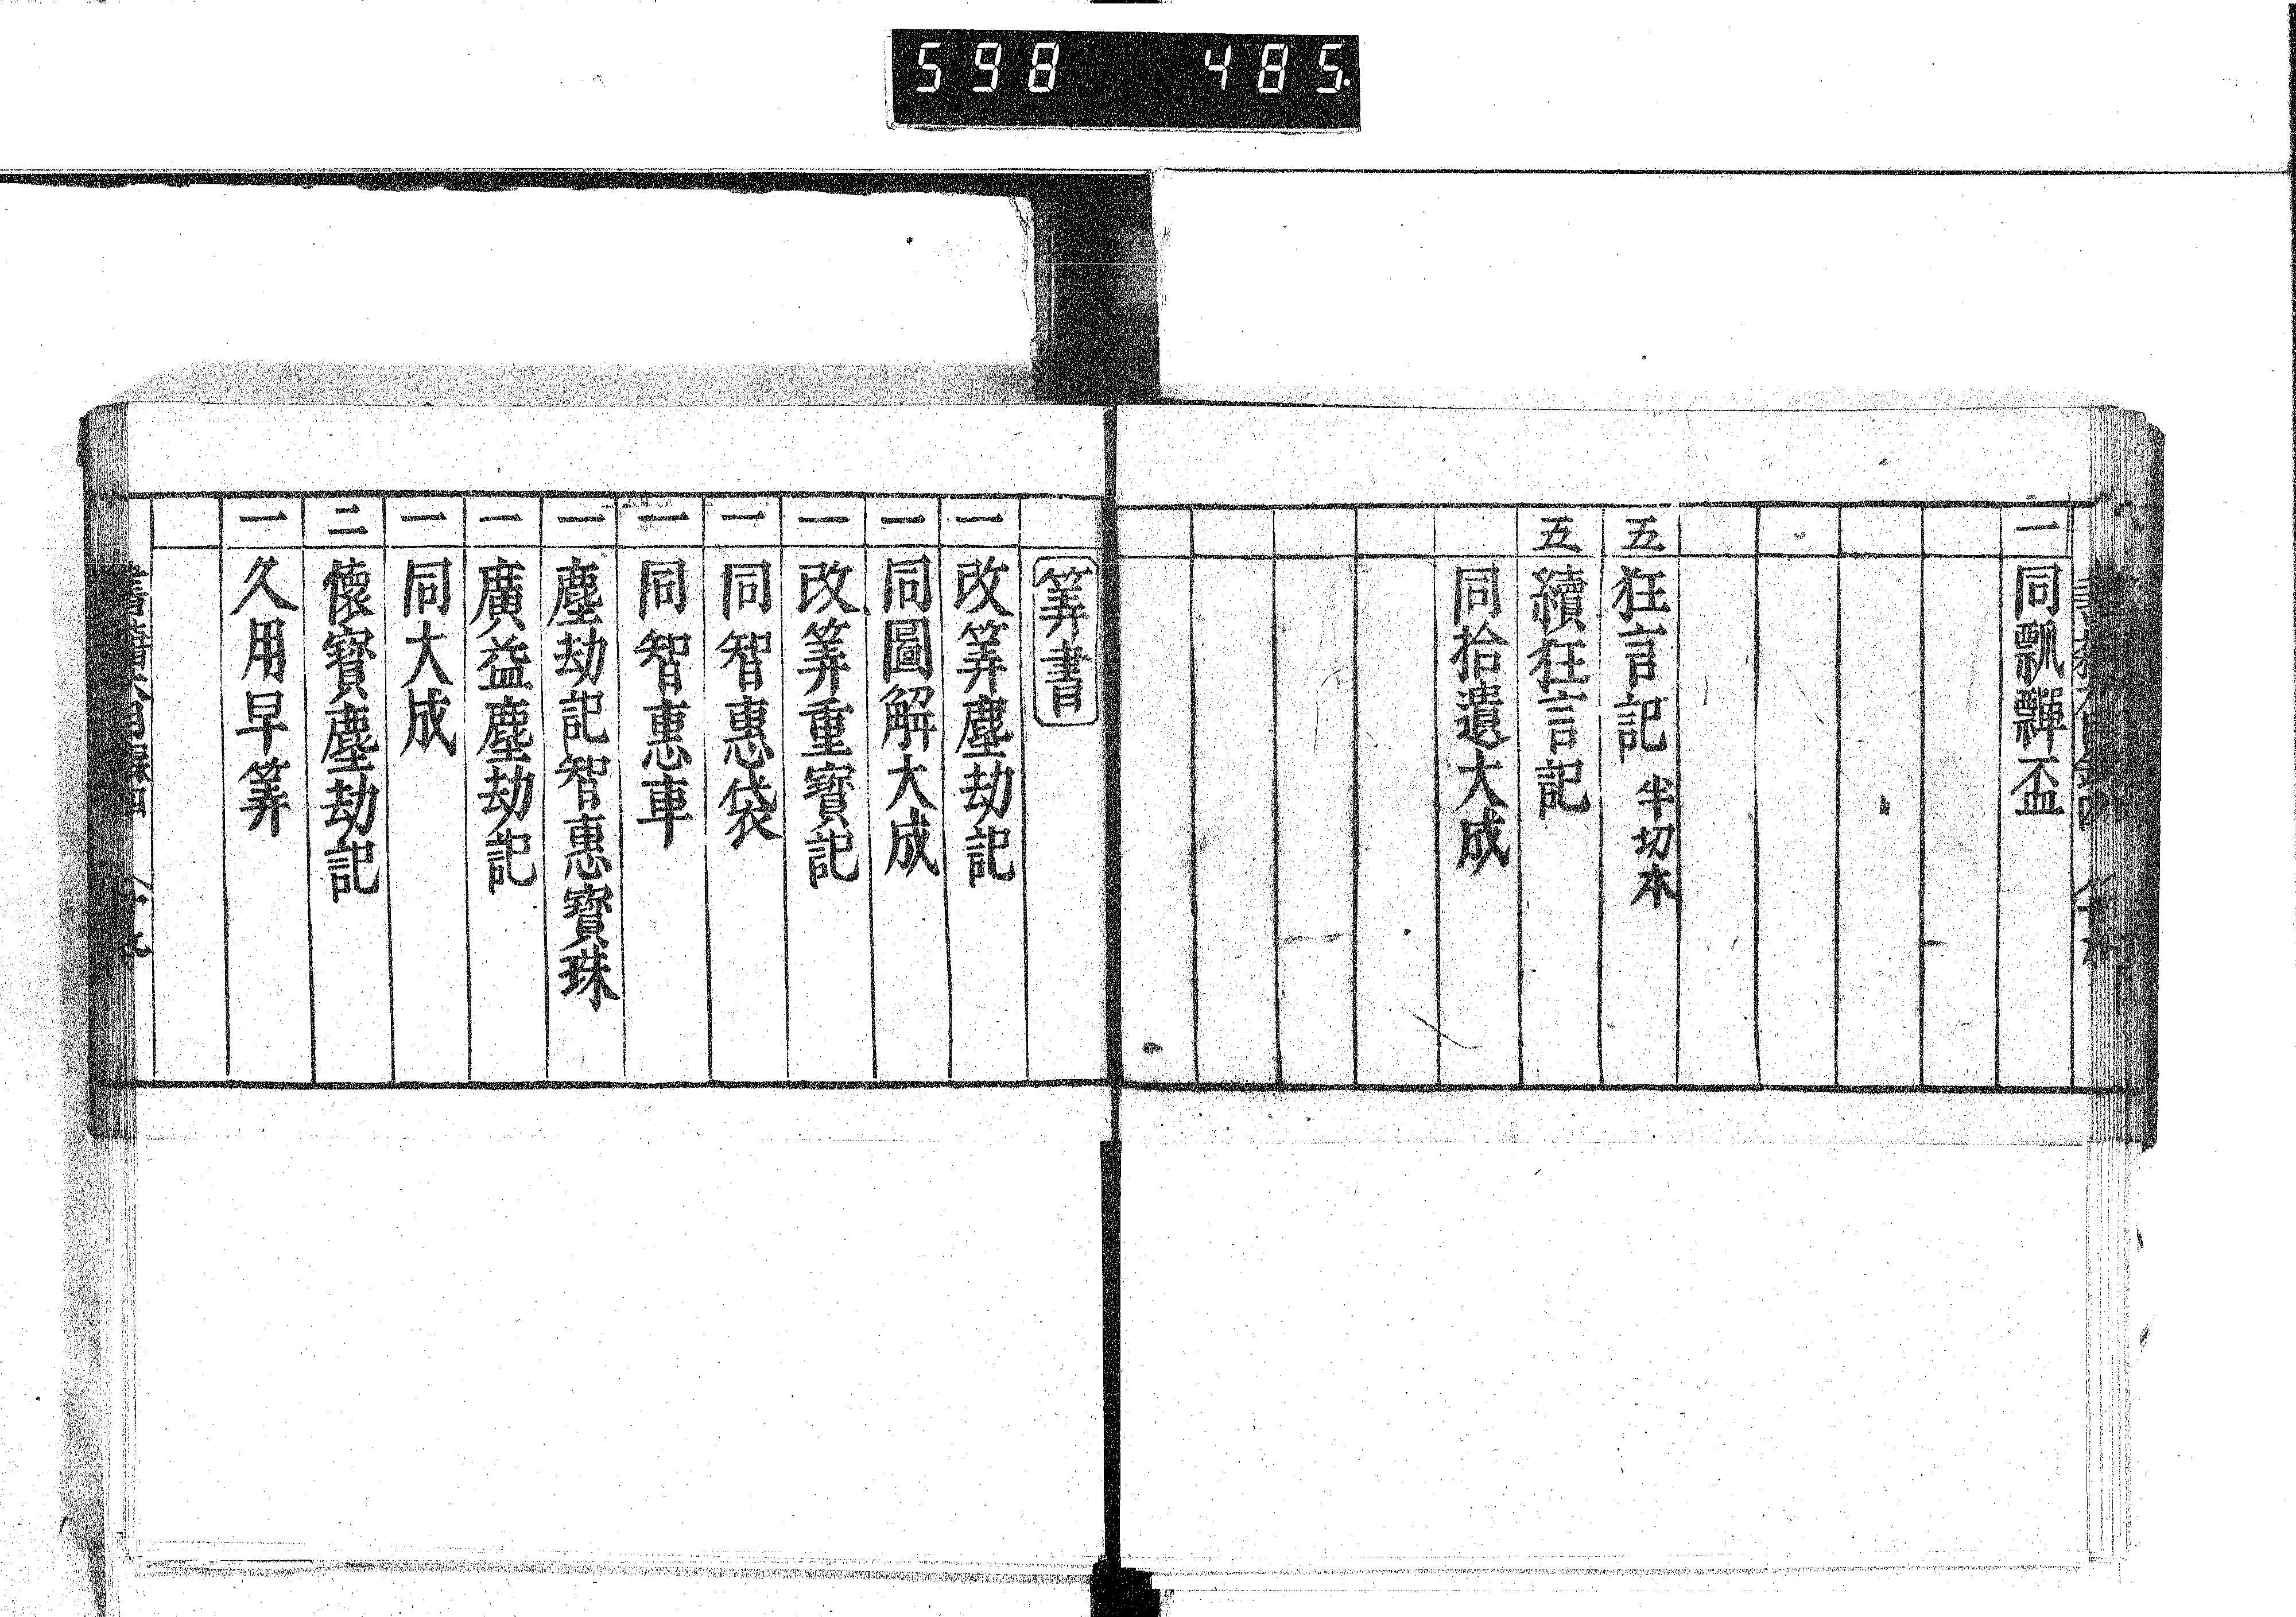 598 485
一 同瓢箪盃
五 狂言記 半切本
五 續狂言記
同拾遺大成
筭書
一 改筭塵劫記
一 同圖解大成
一 改筭重寳記
一 同智惠袋
一 同智惠車
一 塵劫記智惠寳珠
一 廣益塵劫記
一 同大成
三 懐寳塵劫記
一 久用早筭